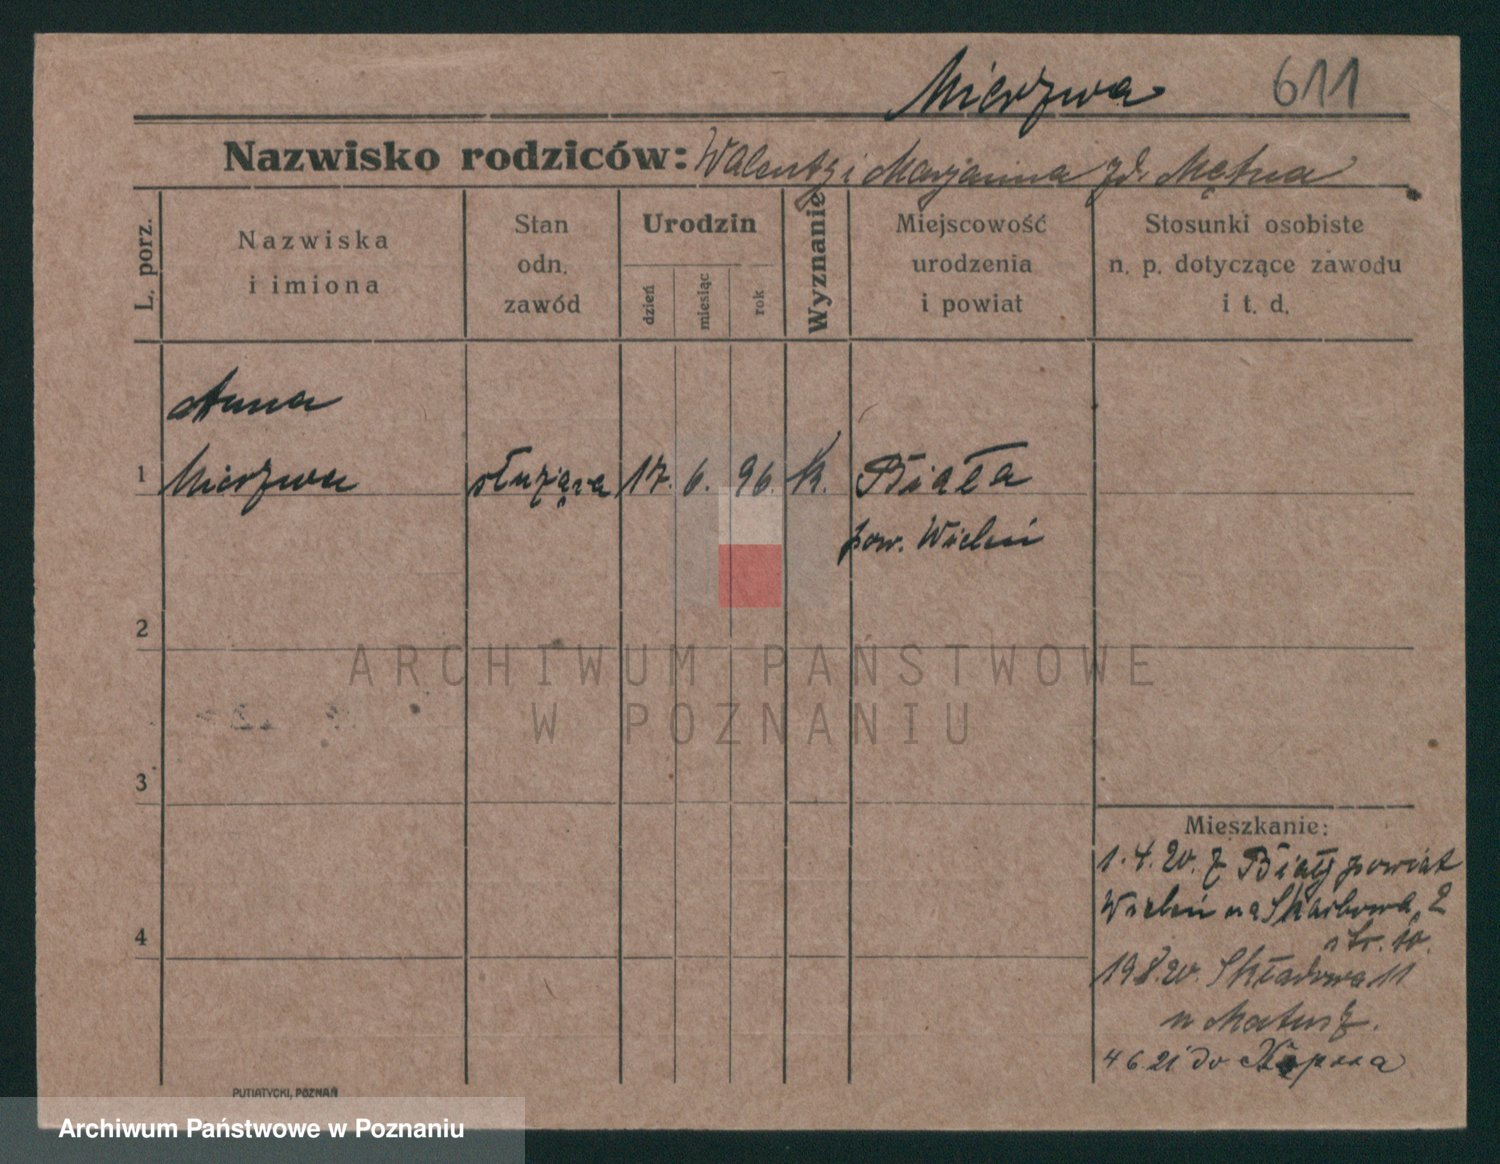 Mierzwa 611
Nazwisko rodziców: Walenty i Marjanna zd. Mętna
L. porz.
Nazwiska
i imiona
Stan
odn.
zawód
Urodzin
dzień
miesiąc
rok
Wyznanie
Miejscowość
urodzenia
i powiat
Stosunki osobiste
n. p. dotyczące zawodu
i t. d.
Anna
1 Mierzwa służąca 17. 6. 96. k. Biała
pow. Wieleń
2
ARCHIWUM PAŃSTWOWE
W POZNANIU
3
Mieszkanie:
1.4.20. z Biały powiat
Wieleń na Skarbowa 2
4
19 8.20. Składowa 11
u Matusz.
4 6 21 do
PUTIATYCKI, POZNAŃ
Archiwum Państwowe w Poznaniu